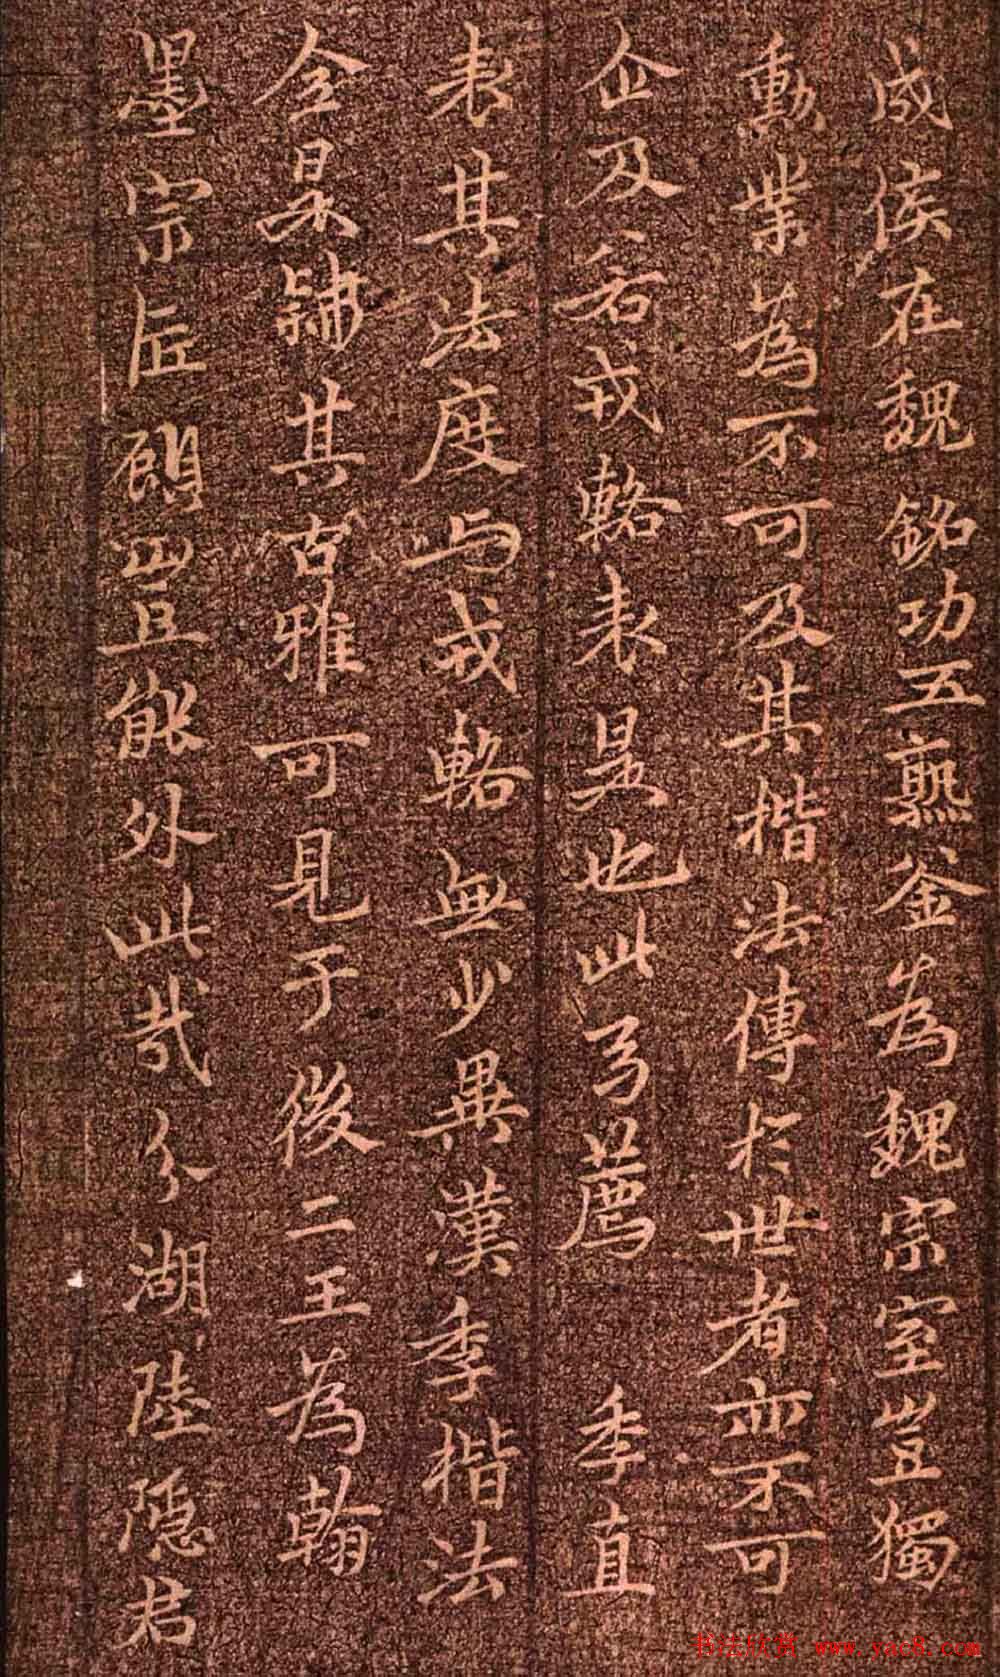 成侯在魏銘功五熟釜為魏宗室豈獨
勳業為不可及其楷法傳於世者亦不可
企及若戎輅表是也此乃薦季直
表其法度与戎輅無少異漢季楷法
全是隸其古雅可見于後二王為翰
墨宗匠顧豈能外此哉分湖陸隱君
书法欣赏 www.yac8.com